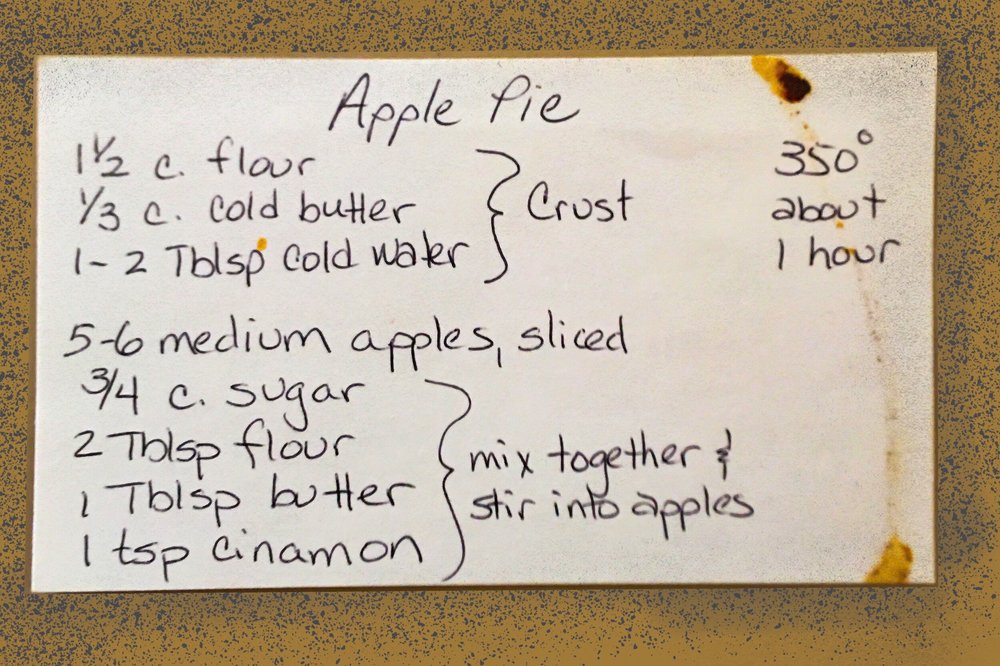 Apple Pie
1½ c. flour
⅓ c. cold butter
1-2 Tblsp cold water
Crust
350°
about
1 hour
5-6 medium apples, sliced
3/4 c. sugar
2 Tblsp flour
1 Tblsp butter
1 tsp cinamon
mix together &
stir into apples